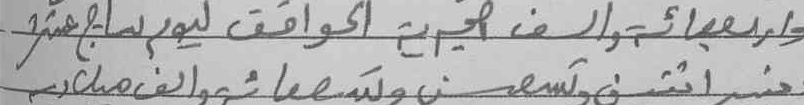 وأربعمائة وألف هجرية الموافق ليوم سابع عشر
سنة اثنتين وتسعين وتسعمائة وألف ميلادية